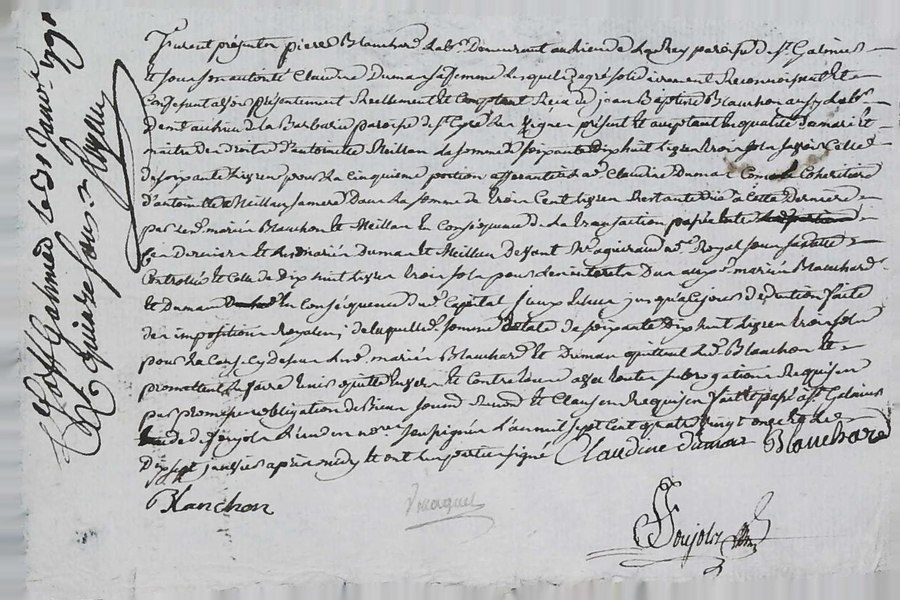 furent présents pierre Blanchard Lab.r demeurant au lieu de paroisse de St Galmier
et sous son autorité Claudine Dumas sa femme lesquels de gré solidairement Reconnoissent et
Confessent avoir présentement Réellement et Comptant Receu de jean Baptiste Blanchon aussy Lab.r
Dem.t au lieu de la Barbarie paroisse de St présent et acceptant en qualité de mari et
maitre des droits d'antoinette Meillan La somme de soixante dix huit livres trois sols sçavoir Celle
de soixante livres pour la Cinquième portion afférante à lad. Claudine Dumas Comme Cohéritière
d'antoinette Meillan sa mere dans la somme de trois Cent livres restante düe à Cette Dernière
par les d. mariés Blanchon et Meillan en Conséquence de la transaction passée entre
Ces Derniers et les mariés Dumas et Meillan devant no.re Royal
Controllée et Celle de dix huit livres trois sols pour les interets dus aux d. mariés Blanchard
et Dumas en Conséquence du d. Capital jusqu'à Ce jour déduction faite
des impositions Royales, de laquelle somme totale de soixante dix huit livres trois sols
pour les Causes Cy dessus les d. mariés Blanchard et Dumas quittent le d. Blanchon et
promettent faire tenir quitte envers et Contre tous avec toutes subrogations Requises
par promesse obligation de biens soumis. renon. et Clauses Requises fait et passé à St Galmier
étude de Soujols l'un des no.res soussignés L'an mil sept Cent quatre vingt onze et le
Dix sept janvier après midy et ont les parties signé Claudine dumas Blanchard
Blanchon
Soujols
à St Galmier le 28 janv.r 1791
R quinze sous